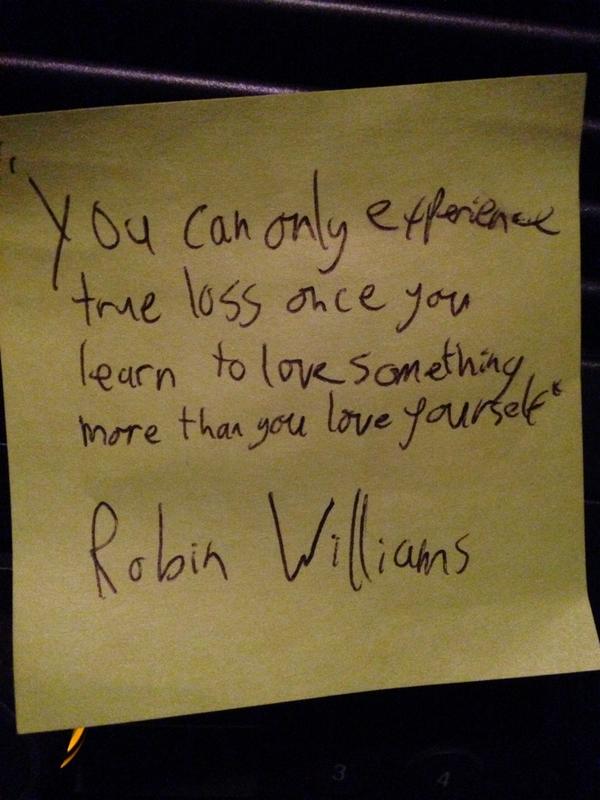 "You can only experience
true loss once you
learn to love something
more than you love yourself"
Robin Williams
3 4